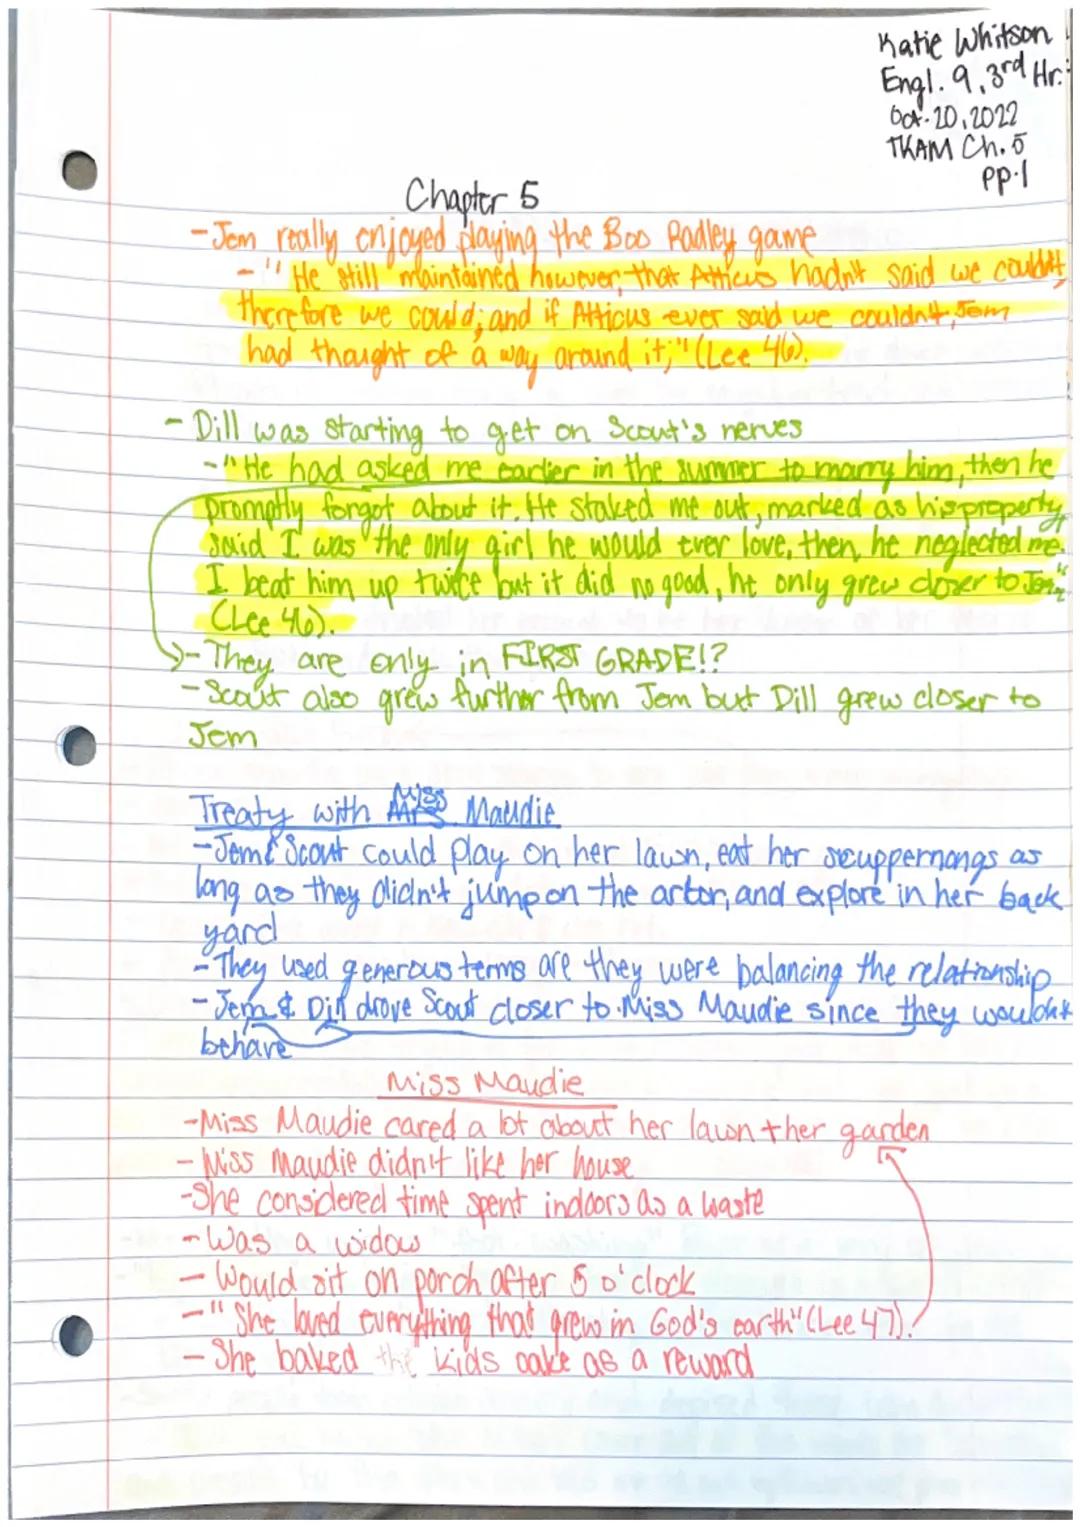 Katie Whitson
Engl. 9, 3rd Hr.
Oct. 20, 2022
TKAM Ch. 5
pp. 1
Chapter 5
- Jem really enjoyed playing the Boo Radley game
- "He still maintained however, that Atticus hadn't said we couldn't,
therefore we could; and if Atticus ever said we couldn't, Jem
had thought of a way around it;" (Lee 46).
- Dill was starting to get on Scout's nerves
- "He had asked me earlier in the summer to marry him, then he
promptly forgot about it. He staked me out, marked as his property
said I was the only girl he would ever love, then he neglected me.
I beat him up twice but it did no good, he only grew closer to Jem"
(Lee 46).
- They are only in FIRST GRADE!?
- Scout also grew further from Jem but Dill grew closer to
Jem
Treaty with Miss Maudie
- Jem & Scout could play on her lawn, eat her scuppernongs as
long as they didn't jump on the arbor, and explore in her back
yard
- They used generous terms are they were balancing the relationship
- Jem & Dill drove Scout closer to Miss Maudie since they wouldn't
behave
Miss Maudie
- Miss Maudie cared a lot about her lawn + her garden
- Miss Maudie didn't like her house
- She considered time spent indoors as a waste
- Was a widow
- Would sit on porch after 5 o'clock
- "She loved everything that grew in God's earth" (Lee 47).
- She baked the kids cake as a reward